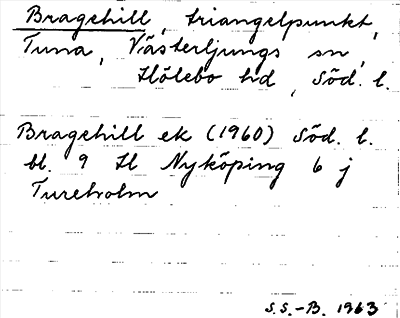 Bragehill, triangelpunkt,
Tuna, Västerljungs sn,
Hölebo hd, Söd. l.
Bragehill ek (1960) Söd. l.
bl. 9 H Nyköping 6 j
Tureholm
S.S.-B. 1963